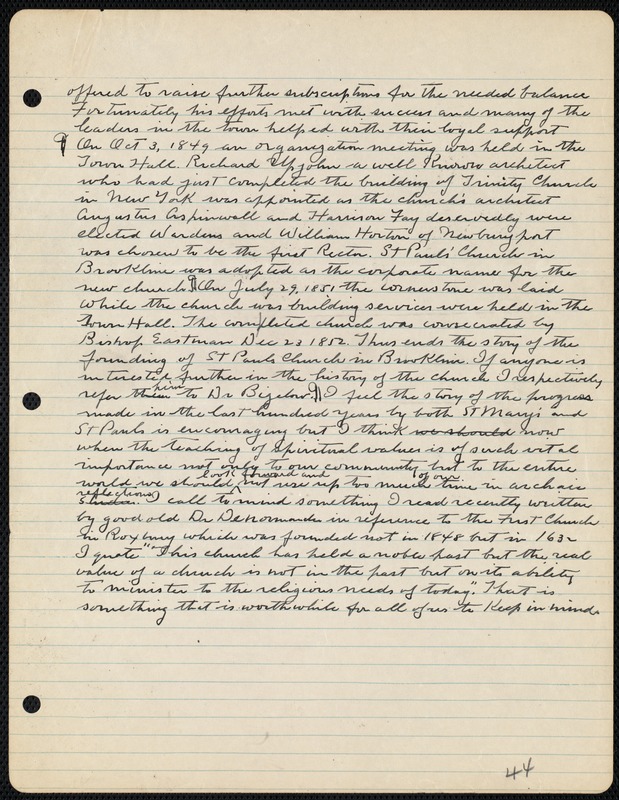 offered to raise further subscriptions for the needed balance
Fortunately his efforts met with success and many of the
leaders in the town helped with their loyal support
¶ On Oct 3, 1849 an organization meeting was held in the
Town Hall. Richard Upjohn a well known architect
who had just completed the building of Trinity Church
in New York was appointed as the church's architect
Augustus Aspinwall and Harrison Fay deservedly were
elected Wardens and William Horton of Newburyport
was chosen to be the first Rector. St Pauls' Church in
Brookline was adopted as the corporate name for the
new church. ¶ On July 29, 1851 the cornerstone was laid
While the church was building services were held in the
Town Hall. The completed church was consecrated by
Bishop Eastman Dec 23 1852. Thus ends the story of the
founding of St Pauls Church in Brookline. If anyone is
interested further in the history of the church I respectively
refer them him to Dr Bigelow. ¶ I feel the story of the progress
made in the last hundred years by both St Mary's and
St Pauls is encouraging but I think we should now
when the teaching of spiritual values is of such vital
importance not only to our community but to the entire
look forward and of our
world we should not use up too much time in archaic
reflections
I call to mind something I read recently written
by good old Dr DeNormandie in reference to the First Church
in Roxbury which was founded not in 1848 but in 1632
I quote "This church has held a noble past but the real
value of a church is not in the past but on its ability
to minister to the religious needs of today". That is
something that is worthwhile for all of us to keep in mind.
44